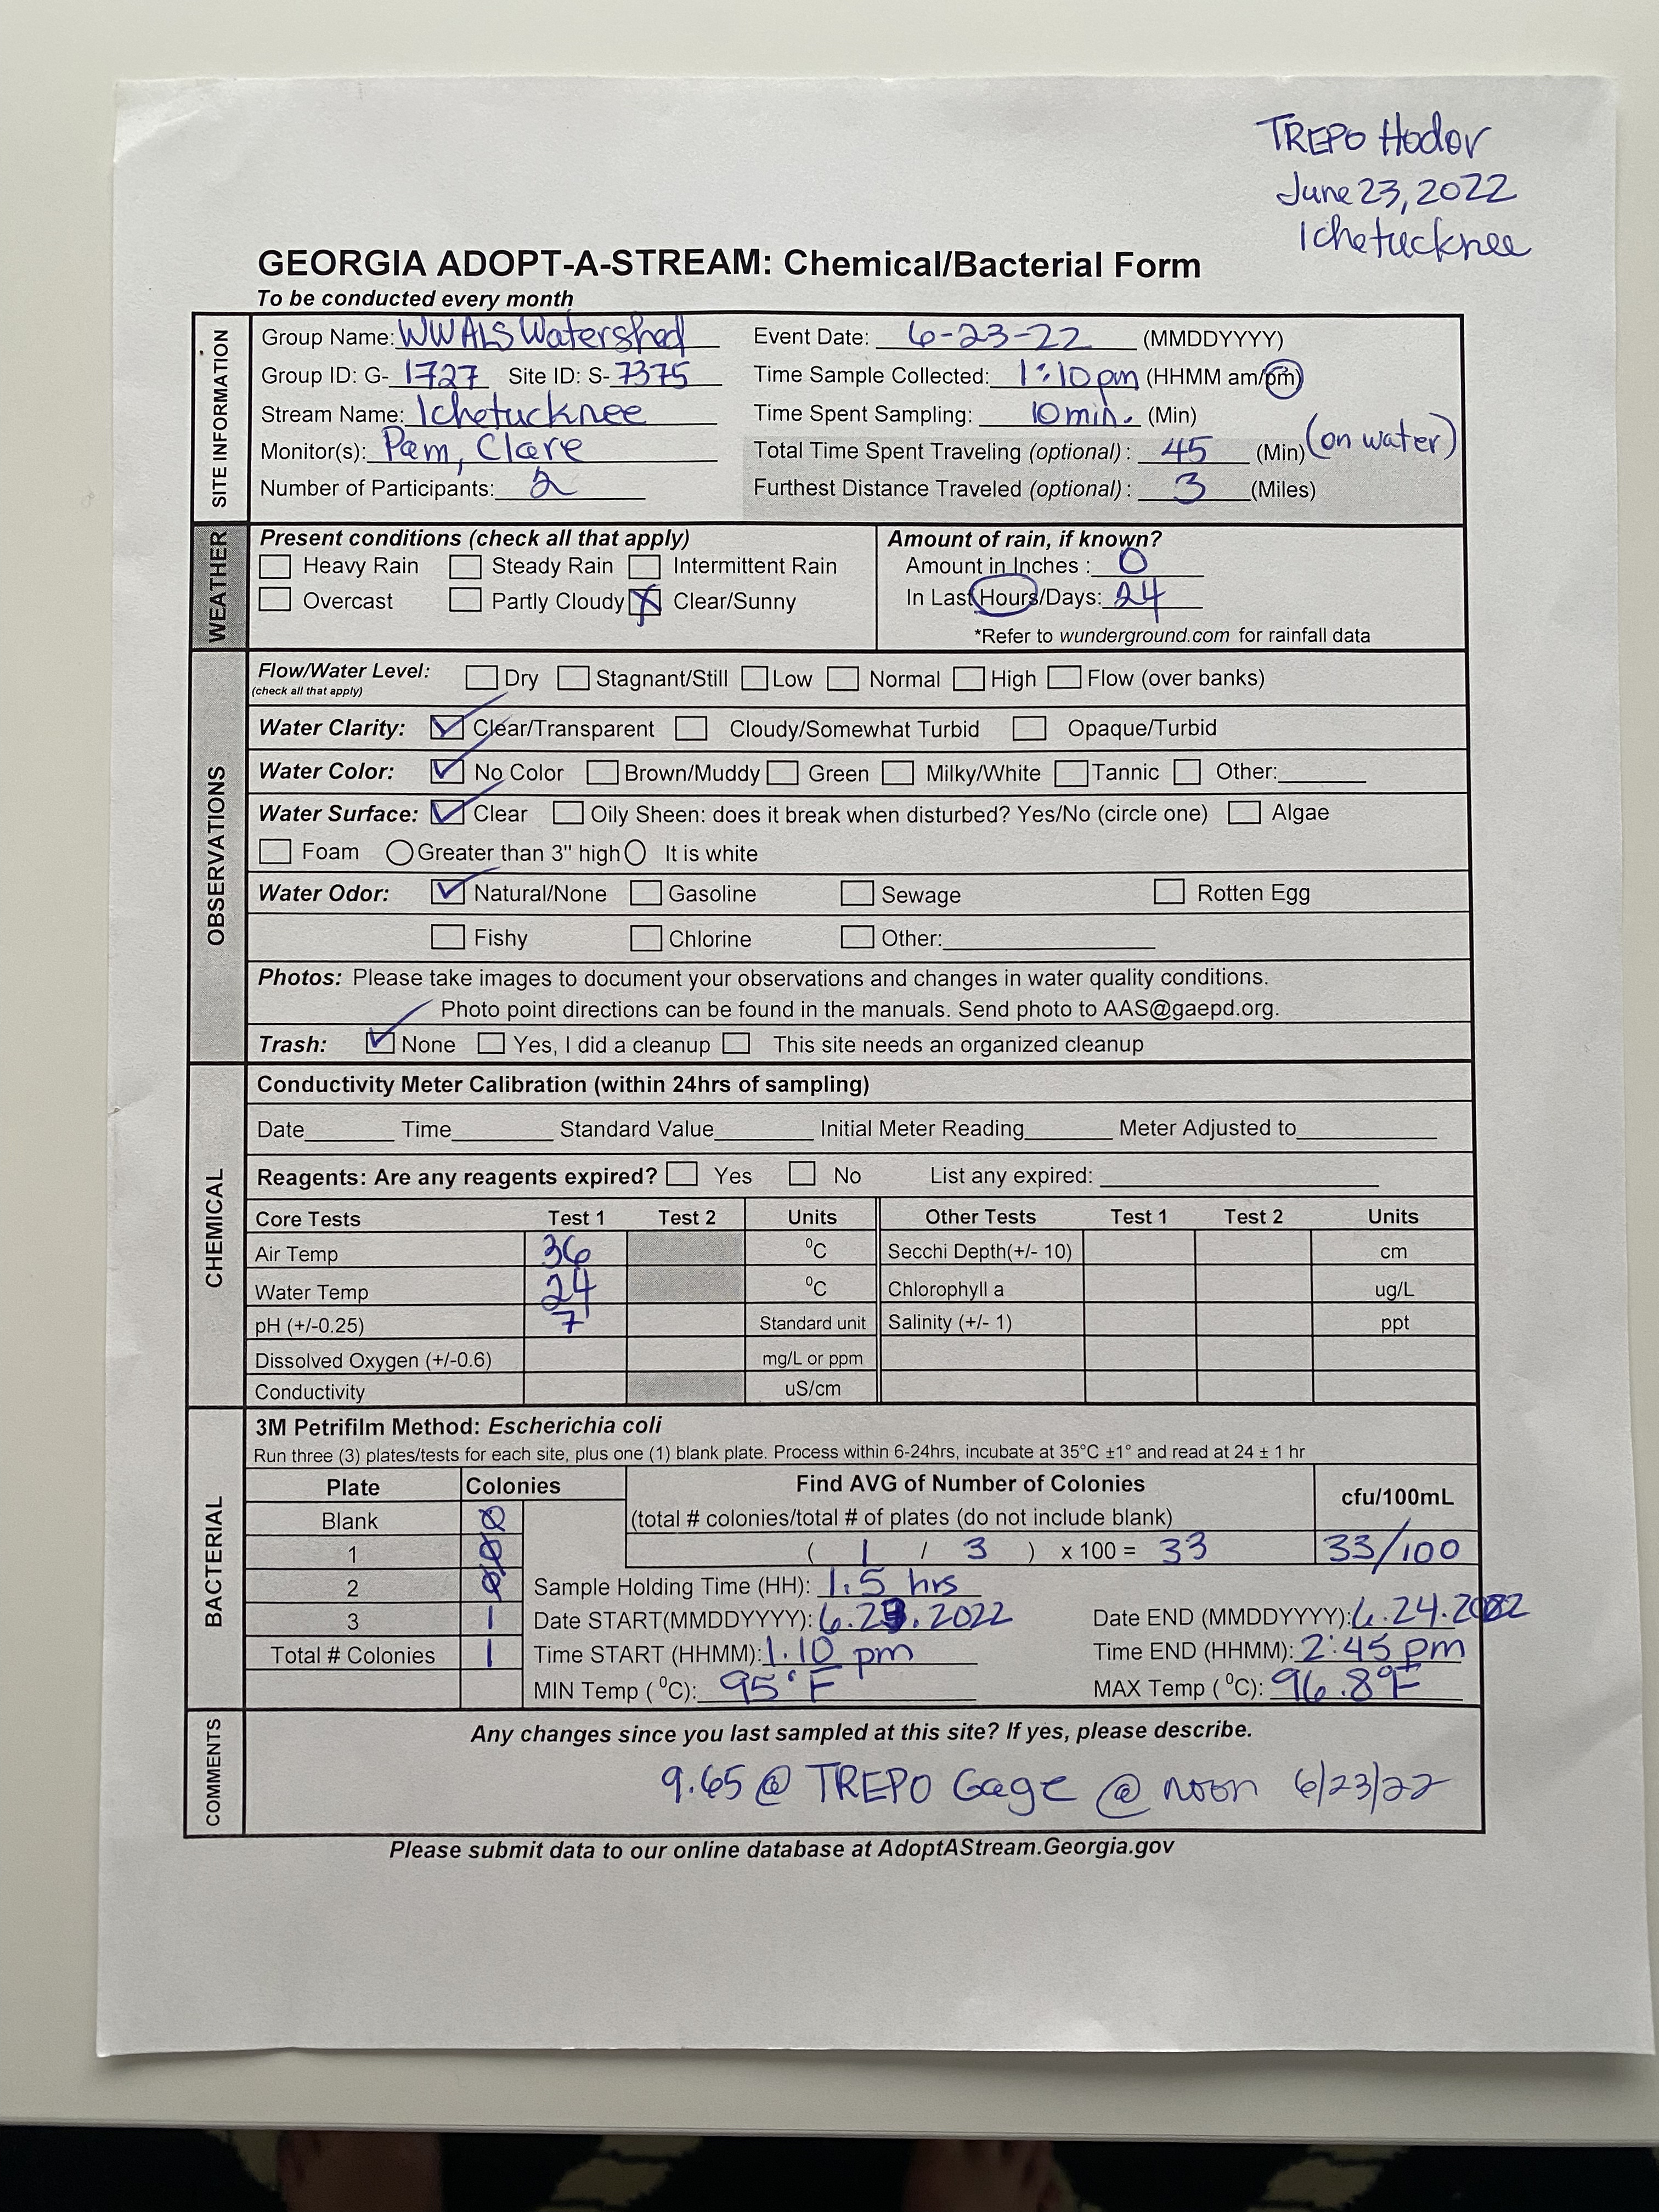 TREPO Hodor
June 23, 2022
Ichetucknee
GEORGIA ADOPT-A-STREAM: Chemical/Bacterial Form
To be conducted every month
SITE INFORMATION
Group Name: WWALS Watershed Event Date: 6-23-22 (MMDDYYYY)
Group ID: G- 1727 Site ID: S- 7375 Time Sample Collected: 1:10 pm (HHMM am/pm)
Stream Name: Ichetucknee Time Spent Sampling: 10 min. (Min)
Monitor(s): Pam, Clare Total Time Spent Traveling (optional) : 45 (Min) (on water)
Number of Participants: 2 Furthest Distance Traveled (optional) : 3 (Miles)
WEATHER
Present conditions (check all that apply) Amount of rain, if known?
Heavy Rain Steady Rain Intermittent Rain Amount in Inches : 0
Overcast Partly Cloudy X Clear/Sunny In Last Hours/Days: 24
*Refer to wunderground.com for rainfall data
OBSERVATIONS
Flow/Water Level: Dry Stagnant/Still Low Normal High Flow (over banks)
(check all that apply)
Water Clarity: ✓ Clear/Transparent Cloudy/Somewhat Turbid Opaque/Turbid
Water Color: ✓ No Color Brown/Muddy Green Milky/White Tannic Other:
Water Surface: ✓ Clear Oily Sheen: does it break when disturbed? Yes/No (circle one) Algae
Foam Greater than 3" high It is white
Water Odor: ✓ Natural/None Gasoline Sewage Rotten Egg
Fishy Chlorine Other:
Photos: Please take images to document your observations and changes in water quality conditions.
Photo point directions can be found in the manuals. Send photo to AAS@gaepd.org.
Trash: ✓ None Yes, I did a cleanup This site needs an organized cleanup
CHEMICAL
Conductivity Meter Calibration (within 24hrs of sampling)
Date Time Standard Value Initial Meter Reading Meter Adjusted to
Reagents: Are any reagents expired? Yes No List any expired:
Core Tests Test 1 Test 2 Units Other Tests Test 1 Test 2 Units
Air Temp 36 ⁰C Secchi Depth(+/- 10) cm
Water Temp 24 ⁰C Chlorophyll a ug/L
pH (+/-0.25) 7 Standard unit Salinity (+/- 1) ppt
Dissolved Oxygen (+/-0.6) mg/L or ppm
Conductivity uS/cm
BACTERIAL
3M Petrifilm Method: Escherichia coli
Run three (3) plates/tests for each site, plus one (1) blank plate. Process within 6-24hrs, incubate at 35°C ±1° and read at 24 ± 1 hr
Plate Colonies Find AVG of Number of Colonies cfu/100mL
Blank 0 (total # colonies/total # of plates (do not include blank)
1 0 ( 1 / 3 ) x 100 = 33 33/100
2 0 Sample Holding Time (HH): 1.5 hrs
3 1 Date START(MMDDYYYY): 6.23.2022 Date END (MMDDYYYY): 6.24.2022
Total # Colonies 1 Time START (HHMM): 1.10 pm Time END (HHMM): 2:45 pm
MIN Temp ( ⁰C): 95°F MAX Temp ( ⁰C): 96.8°F
COMMENTS
Any changes since you last sampled at this site? If yes, please describe.
9.65 @ TREPO Gage @ noon 6/23/22
Please submit data to our online database at AdoptAStream.Georgia.gov